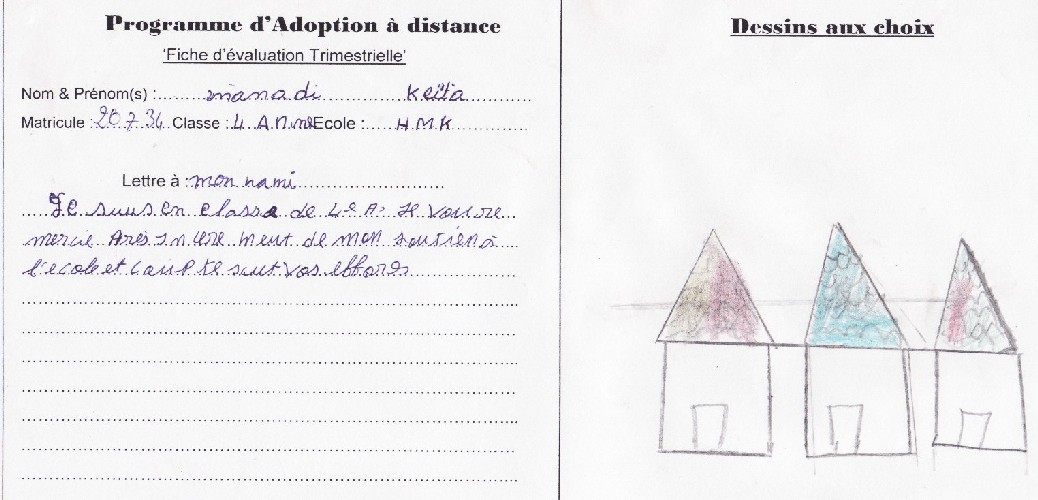 Programme d'Adoption à distance
'Fiche d'évaluation Trimestrielle'
Nom & Prénom(s) : manadi Keïta
Matricule : 20734 Classe : 4 Anne Ecole : HMK
Lettre à : mon nami
Je suus en classe de 4e A. Je vou re
mercie Ares in cere ment de mon soutien à
l'ecole et compte sut vos effores
Dessins aux choix